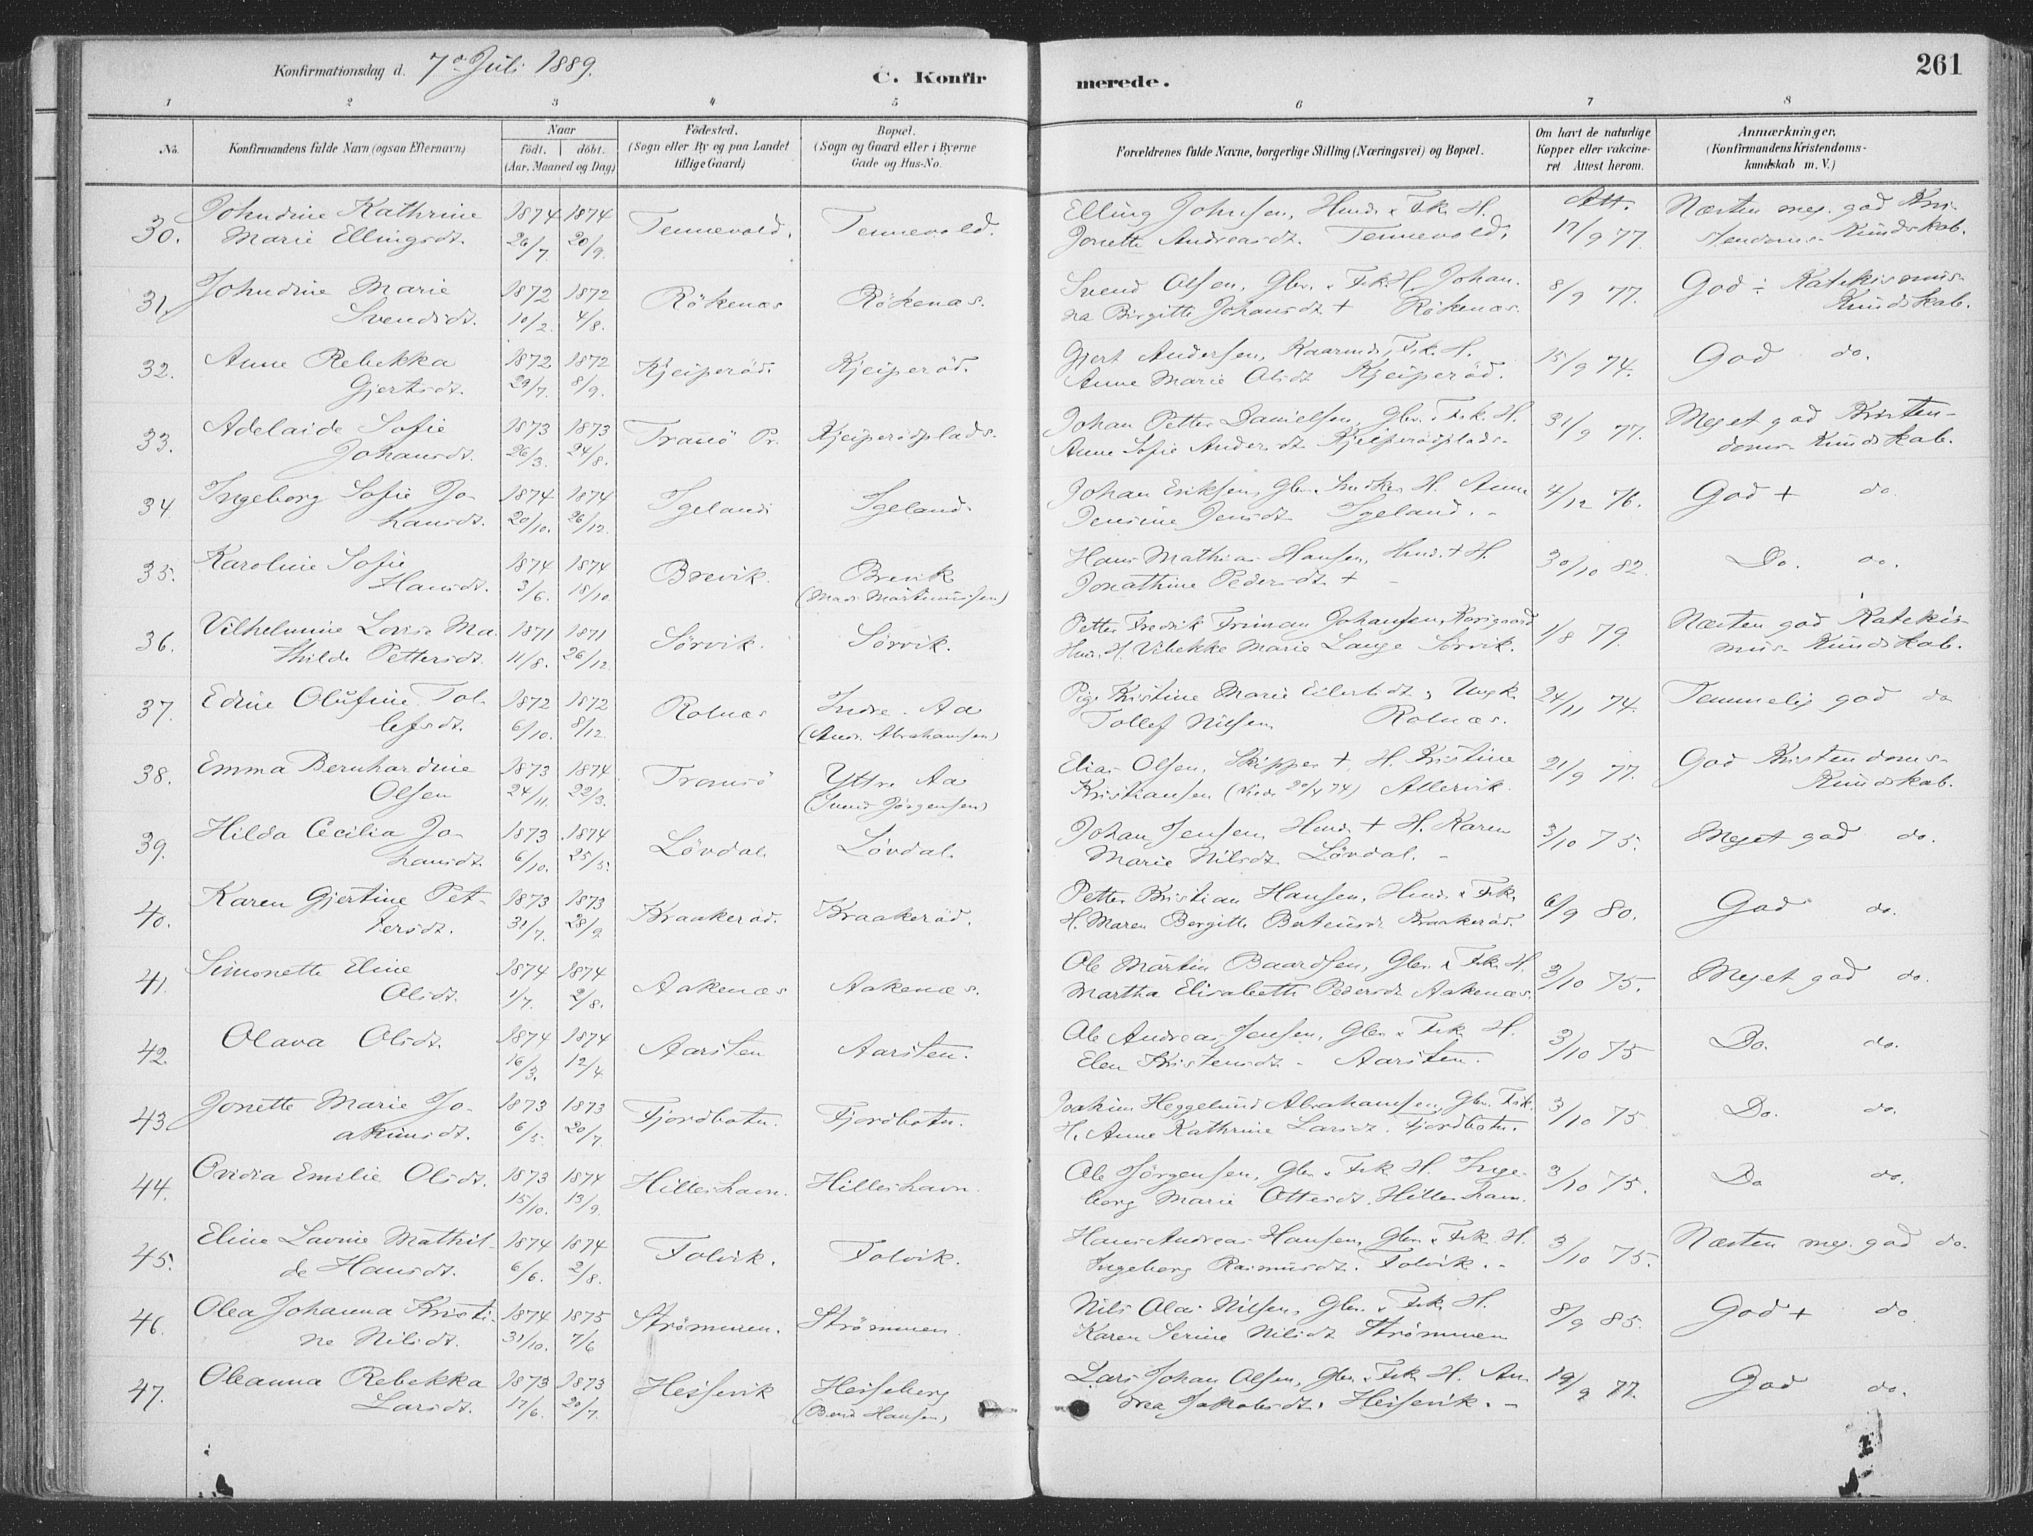 Konfirmationsdag d. 7de Juli 1889.
C. Konfir
merede.
261
1 2 3 4 5 6 7 8
No.
Konfirmandens fulde Navn (ogsaa Efternavn)
Naar
født. døbt.
(Aar, Maaned og Dag)
Fødested.
(Sogn eller By og paa Landet
tillige Gaard)
Bopæl.
(Sogn og Gaard eller i Byerne
Gade og Hus-No.
Forældrenes fulde Navne, borgerlige Stilling (Næringsvei) og Bopæl.
Om havt de naturlige
Kopper eller vakcine-
ret Attest herom.
Anmærkninger.
(Konfirmandens Kristendoms-
kundskab m. V.)
30. Johndine Kathrine 1874 1874 Tennevold. Tennevold. Elling Johnsen, Hmd. & Fsk. H. Att. Næsten meg. god Kri-
Marie Ellingsdt. 26/7. 20/9. Jonette Andreasdt. Tennevold. 17/9 77. stendoms-Kundskab.
31. Johndine Marie 1872 1872 Rökenæs Rökenæs. Svend Olsen, Gbr. & Fsk. H. Johan- 8/9 77. God ÷ Katekismus-
Svendsdt. 10/2. 4/8. na Birgitte Johansdt + Rökenæs. Kundskab.
32. Anne Rebekka 1872 1872 Kjeiperöd. Kjeiperöd. Gjert Andersen, Kaarmd., Fsk. H. 15/9 74. God do.
Gjertsdt. 29/7. 8/9. Anne Marie Olsdt Kjeiperöd.
33. Adelaide Sofie 1873 1873 Tranö Pr. Kjeiperödplads. Johan Petter Danielsen, Gbr. & Fsk. H. 31/9 77. Meget god Kristen-
Johansdt. 26/3. 24/8. Anne Sofie Andersdt Kjeiperödplads. doms-Kundskab.
34 Ingeborg Sofie Jo- 1874 1874 Igeland Igeland. Johan Eriksen, Gbr. H. Anne 4/12 76. God + do.
hansdt. 20/10. 26/12. Jensine Jensdt Igeland.
35. Karoline Sofie 1874 1874 Brevik. Brevik Hans Mathias Hansen, Hmd. + H. 30/10 82. Do. do.
Hansdt. 3/6. 18/10. (Mads Martinussen) Jonathine Pedersdt +
36. Vilhelmine Lovise Ma- 1871 1871 Sörvik. Sörvik. Petter Fredrik Friman Johansen, 1/8 79. Næsten god Katekis-
thilde Pettersdt. 11/8. 26/12. Hmd. H. Vibekke Marie Lange Sörvik. mus-Kundskab.
37. Edine Olufine Tol- 1872 1872 Rolnæs Indre-Aa Pige Kristine Marie Eilertsdt & Ungk. 24/11 74. Temmelig god do
lefsdt. 6/10. 8/12. (Andr. Abrahamsen) Tollef Nilsen Rolnæs.
38. Emma Bernhardine 1873 1874 Tromsö Yttre Aa Elias Olsen, Skipper +, H. Kristine 21/9 77. God Kristendoms-
Olsen 24/11. 22/3. (Svend Jörgensen) Kristiansen Allervik. Kundskab.
39. Hilda Cecilia Jo- 1873 1874 Lövdal Lövdal. Johan Jensen, Hmd. + H. Karen 3/10 75. Meget god do.
hansdt. 6/10. 25/5. Marie Nilsdt Lövdal.
40. Karen Gjertine Pet- 1873 1873 Kraakeröd. Kraakeröd. Petter Kristian Hansen, Hmd. & Fsk. 6/9 80. God do.
tersdt. 31/7. 28/9. H. Maren Bergitte Bertensdt Kraakeröd.
41. Simonette Eline 1874 1874 Aakenæs Aakenæs. Ole Martin Baardsen, Gbr. & Fsk. H. 3/10 75. Meget god do.
Olsdt. 1/7. 2/8. Martha Elisabeth Pedersdt Aakenæs.
42. Olava Olsdt. 1874 1874 Aarsten Aarsten. Ole Andreas Jensen, Gbr. & Fsk. H. 3/10 75 Do. do.
16/3. 12/4. Elen Kristensdt. Aarsten.
43. Jonette Marie Jo- 1873 1873 Fjordbotn. Fjordbotn. Joakim Heggelund Abrahamsen, Gbr. Fsk. 3/10 75 Do. do.
akimsdt. 6/5. 20/7. H. Anne Kathrine Larsdt. Fjordbotn.
44. Ovidia Emilie Olsdt. 1873 1874 Hilleshavn. Hilleshavn. Ole Jörgensen, Gbr. & Fsk. H. Inge- 3/10 75. Do do.
15/10. 13/9. borg Marie Ottersdt. Hilleshavn.
45. Eline Lavine Mathil- 1874 1874 Tolvik. Tolvik. Hans Andreas Hansen, Gbr. & Fsk. H. 3/10 75. Næsten meg. god do.
de Hansdt. 6/6. 2/8. Ingeborg Rasmusdt. Tolvik.
46. Olea Johanna Kristi- 1874 1875 Strömmen. Strömmen. Nils Olai Nilsen, Gbr. & Fsk. H. 8/9 85. God + do.
ne Nilsdt. 31/10. 7/6 Karen Serine Nilsdt Strömmen
47. Oleanna Rebekka 1873 1873 Hessevik Hesseberg Lars Johan Olsen, Gbr. & Fsk. H. An- 19/9 77. God do.
Larsdt. 17/6. 20/7. (Bernt Hansen) drea Jakobsdt. Hessevik.